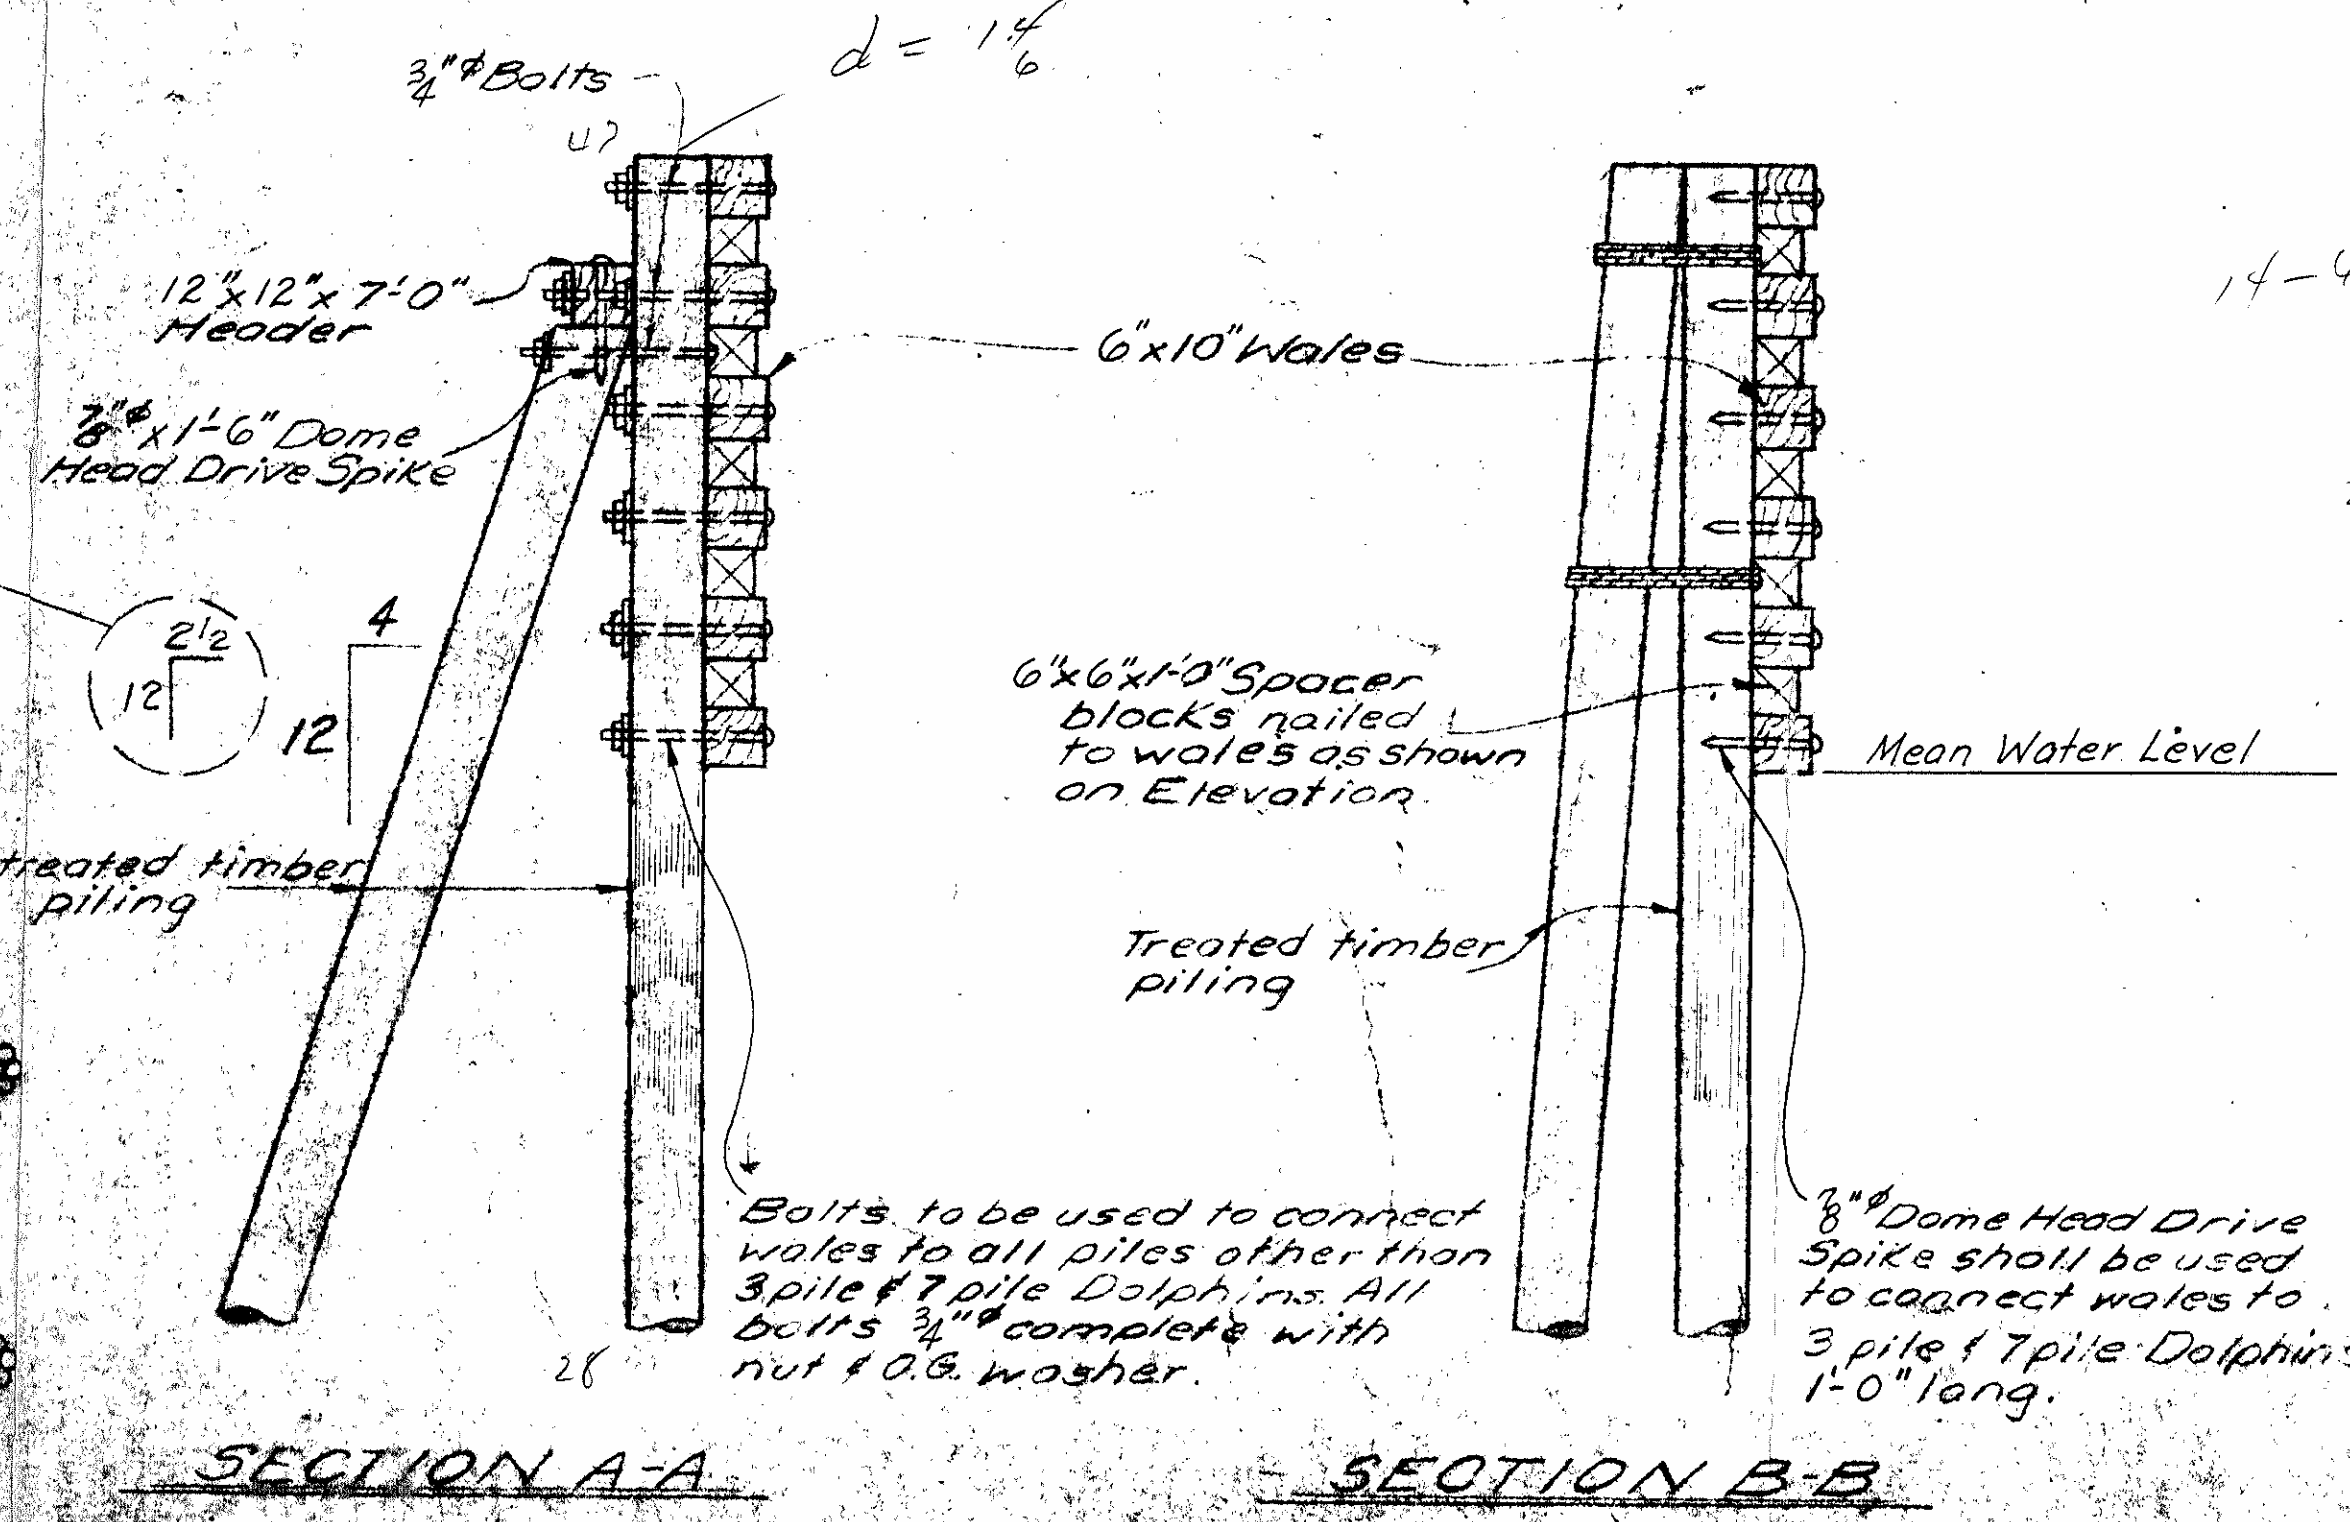 d = 1
3/4"ø Bolts
47
12"x12"x 7'-0"
Header
7/8"ø x 1'-6" Dome
Head Drive Spike
6"x10" Wales
14-
2 1/2
12
4
12
6"x6"x1'-0" Spacer
blocks nailed
to wales as shown
on Elevation.
Mean Water Level
treated timber
piling
Treated timber
piling
Bolts to be used to connect
wales to all piles other than
3 pile & 7 pile Dolphins. All
bolts 3/4"ø complete with
nut & O.G. washer.
28
7/8"ø Dome Head Drive
Spike shall be used
to connect wales to
3 pile & 7 pile Dolphins
1'-0" long.
SECTION A-A
SECTION B-B